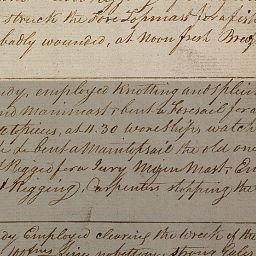 struck the Fore Topmast for a fish
badly wounded, at Noon fresh Breez
dy, employed Knotting and Splicin
nd Main mast & bent a Foresail for a
at 4.30 wore Ship, watch
& bent a Maintopsail the old one
Rigged for a Jury Mizen Mast, Em
Rigging, Carpenters stopping the
dy Employed clearing the Wreck of the